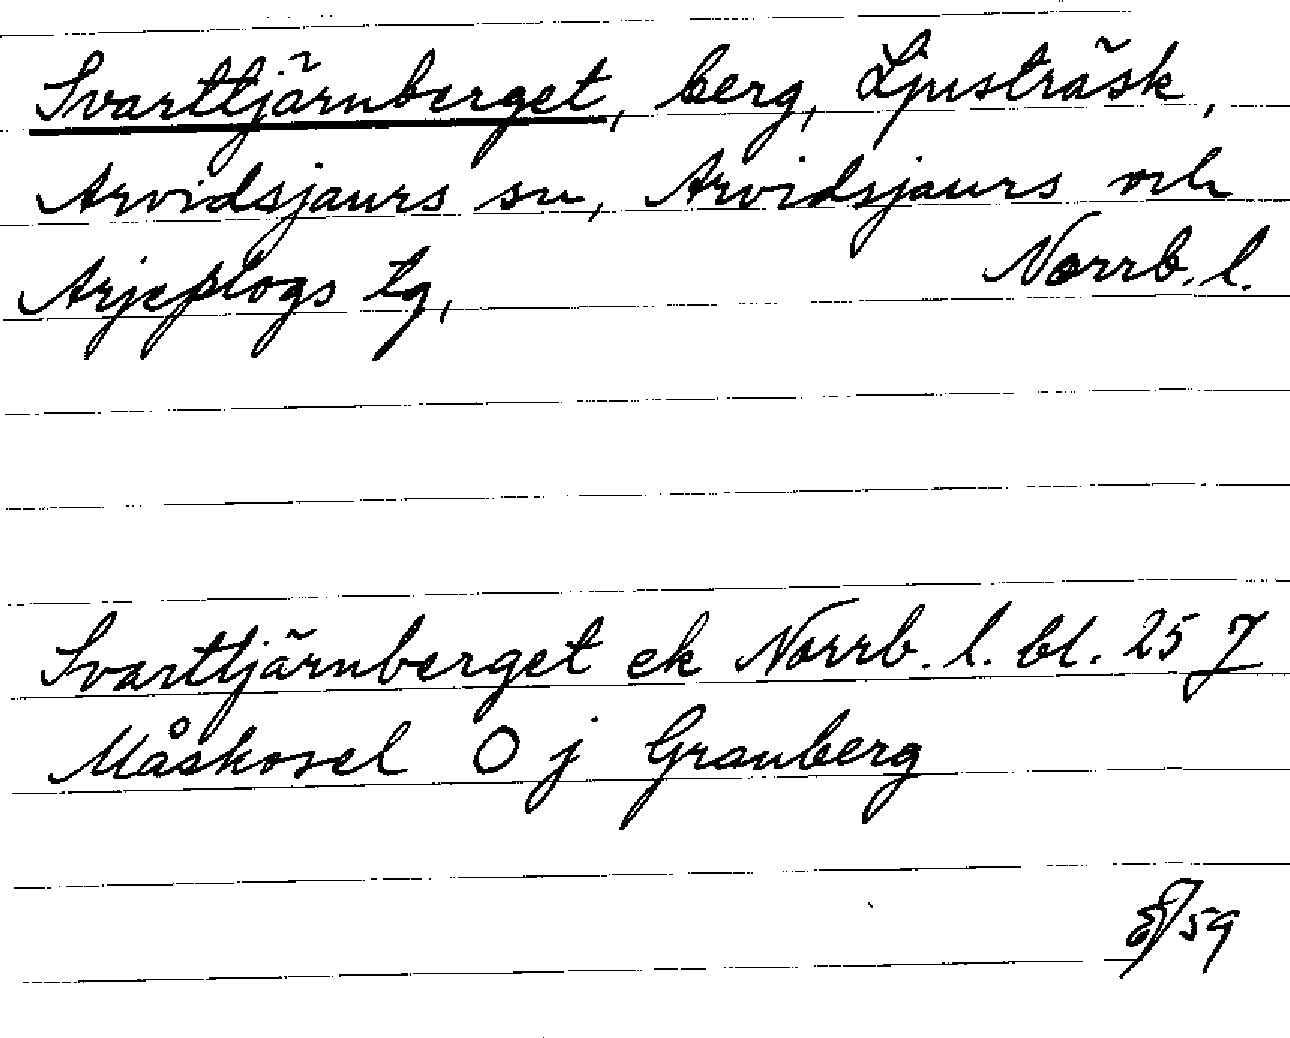 Svarttjärnberget, berg, Ljusträsk,
Arvidsjaurs sn, Arvidsjaurs och
Arjeplogs tg, Norrb. l.
Svarttjärnberget ek Norrb. l. bl. 25 J
Måskosel O j Granberg
/59